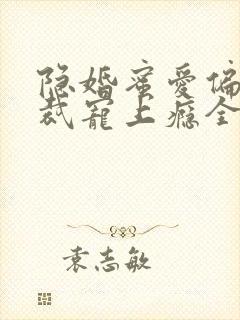 隐婚蜜爱偏
裁宠上瘾全
袁志敏